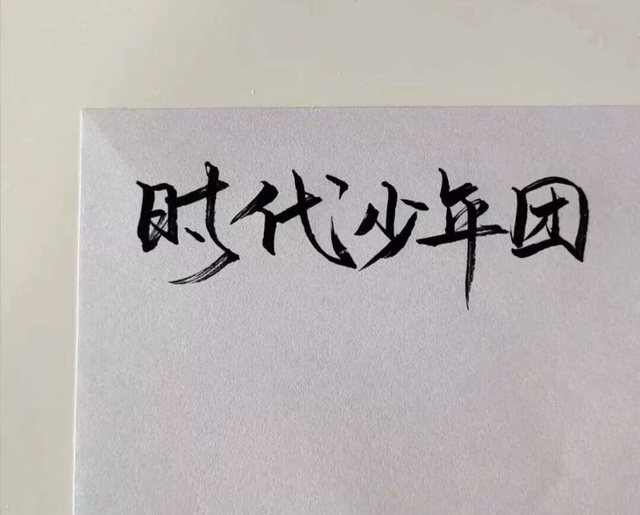 时代少年团